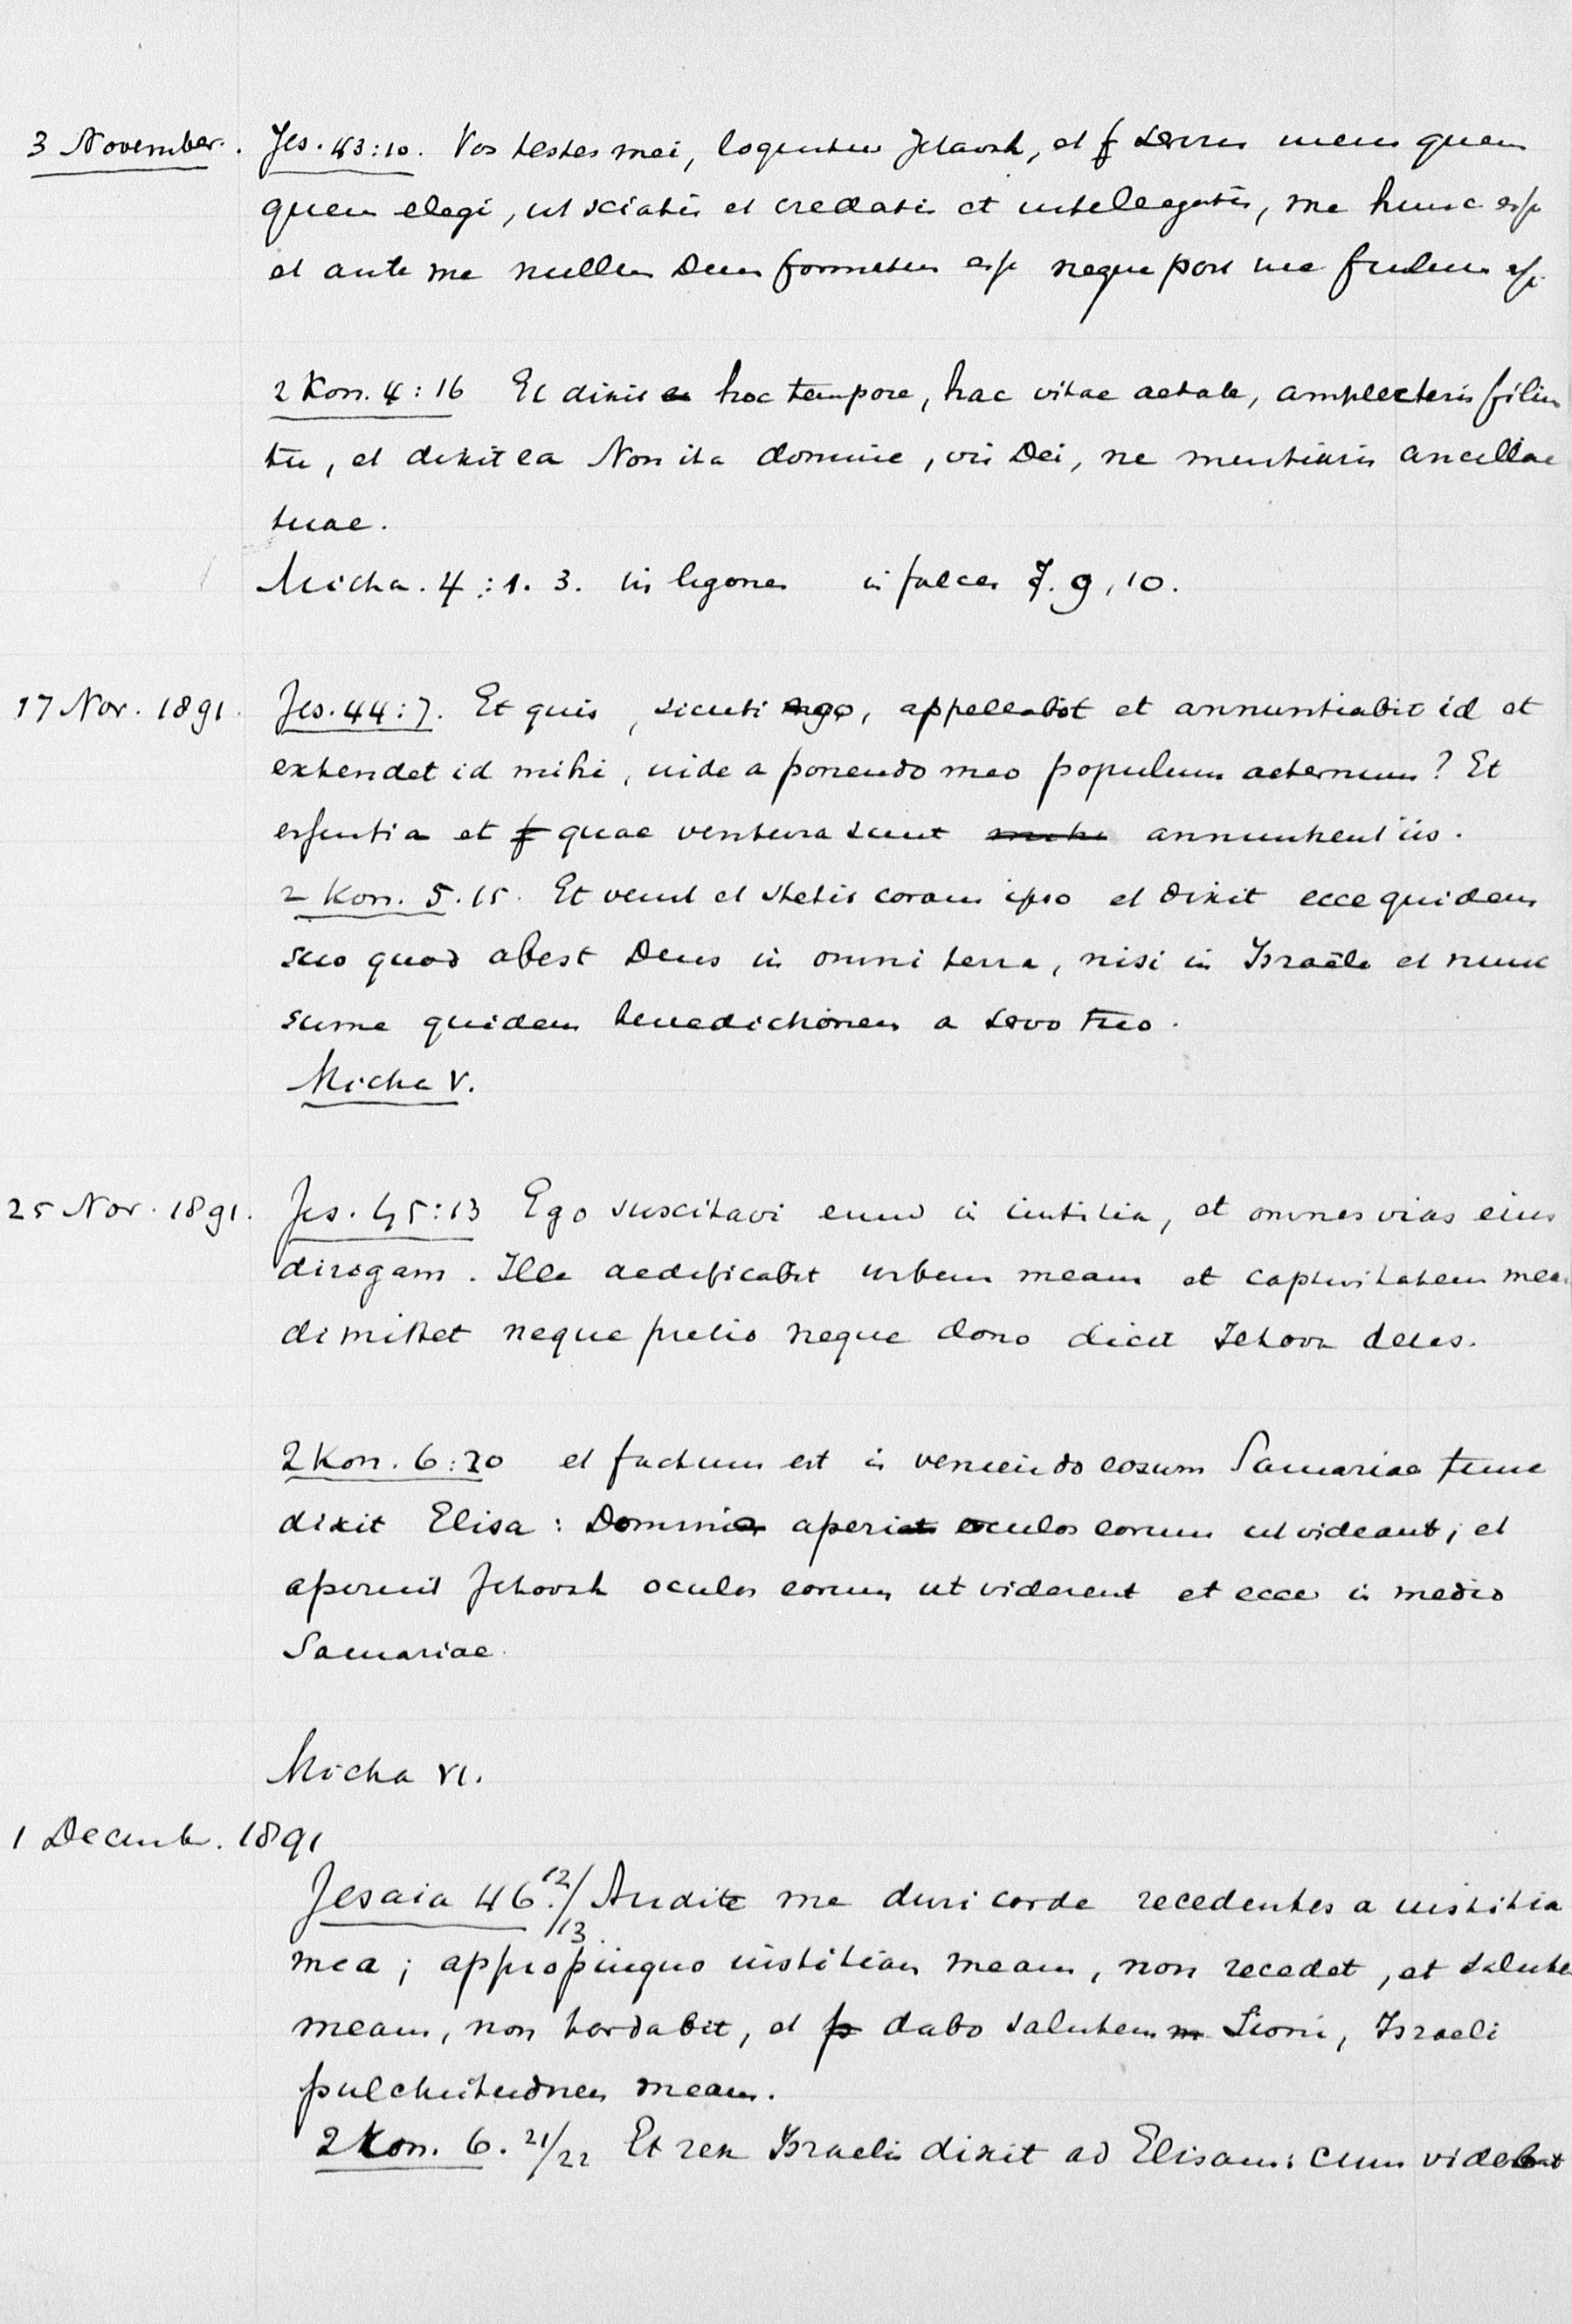 3 November. Jes. 43:10. Vos testes mei, loquitur Jehovah, et servus meus quem
quem elegi, ut sciatis et credatis et intelegatis, me hunc esse
et ante me nullum Deum formatum esse neque post me
2 Kon. 4:16 Et dixit hoc tempore, hac vitae aetate, amplecteris filium
tu, et dixit ea Non ita domine, vir Dei, ne mentiaris ancillae
tuae.
Micha. 4:1. 3. in ligones in falces 7. 9, 10.
17 Nov. 1891. Jes. 44:7. Et quis, sicuti ego, appellabit et annuntiabit id et
extendet id mihi, inde a ponendo meo populum aeternum? Et
essentia et quae ventura sunt annuntient iis.
2 Kon. 5.15. Et venit et stetit coram ipso et dixit ecce quidem
scio quod abest Deus in omni terra, nisi in Israële et nunc
sume quidem benedictionem a servo tuo.
Micha V.
25 Nov. 1891. Jes. 45:13 Ego suscitavi eum in iustitia, et omnes vias eius
dirigam. Ille aedificabit urbem meam et captivitatem meam
dimittet neque pretio neque dono dicit Jehova deus.
2 Kon. 6:20 et factum est in veniendo eorum Samariae tunc
dixit Elisa: Domine aperi oculos eorum ut videant; et
aperuit Jehovah oculos eorum ut viderent et ecce in medio
Samariae.
Micha VI.
1 Decemb. 1891
Jesaia 46. 12/13. Audite me duri corde recedentes a iustitia
mea; appropinquo iustitiam meam, non recedet, et salutem
meam, non tardabit, et dabo salutem Sioni, Israeli
pulchritudinem meam.
2 Kon. 6. 21/22 Et rex Israelis dixit ad Elisam: cum